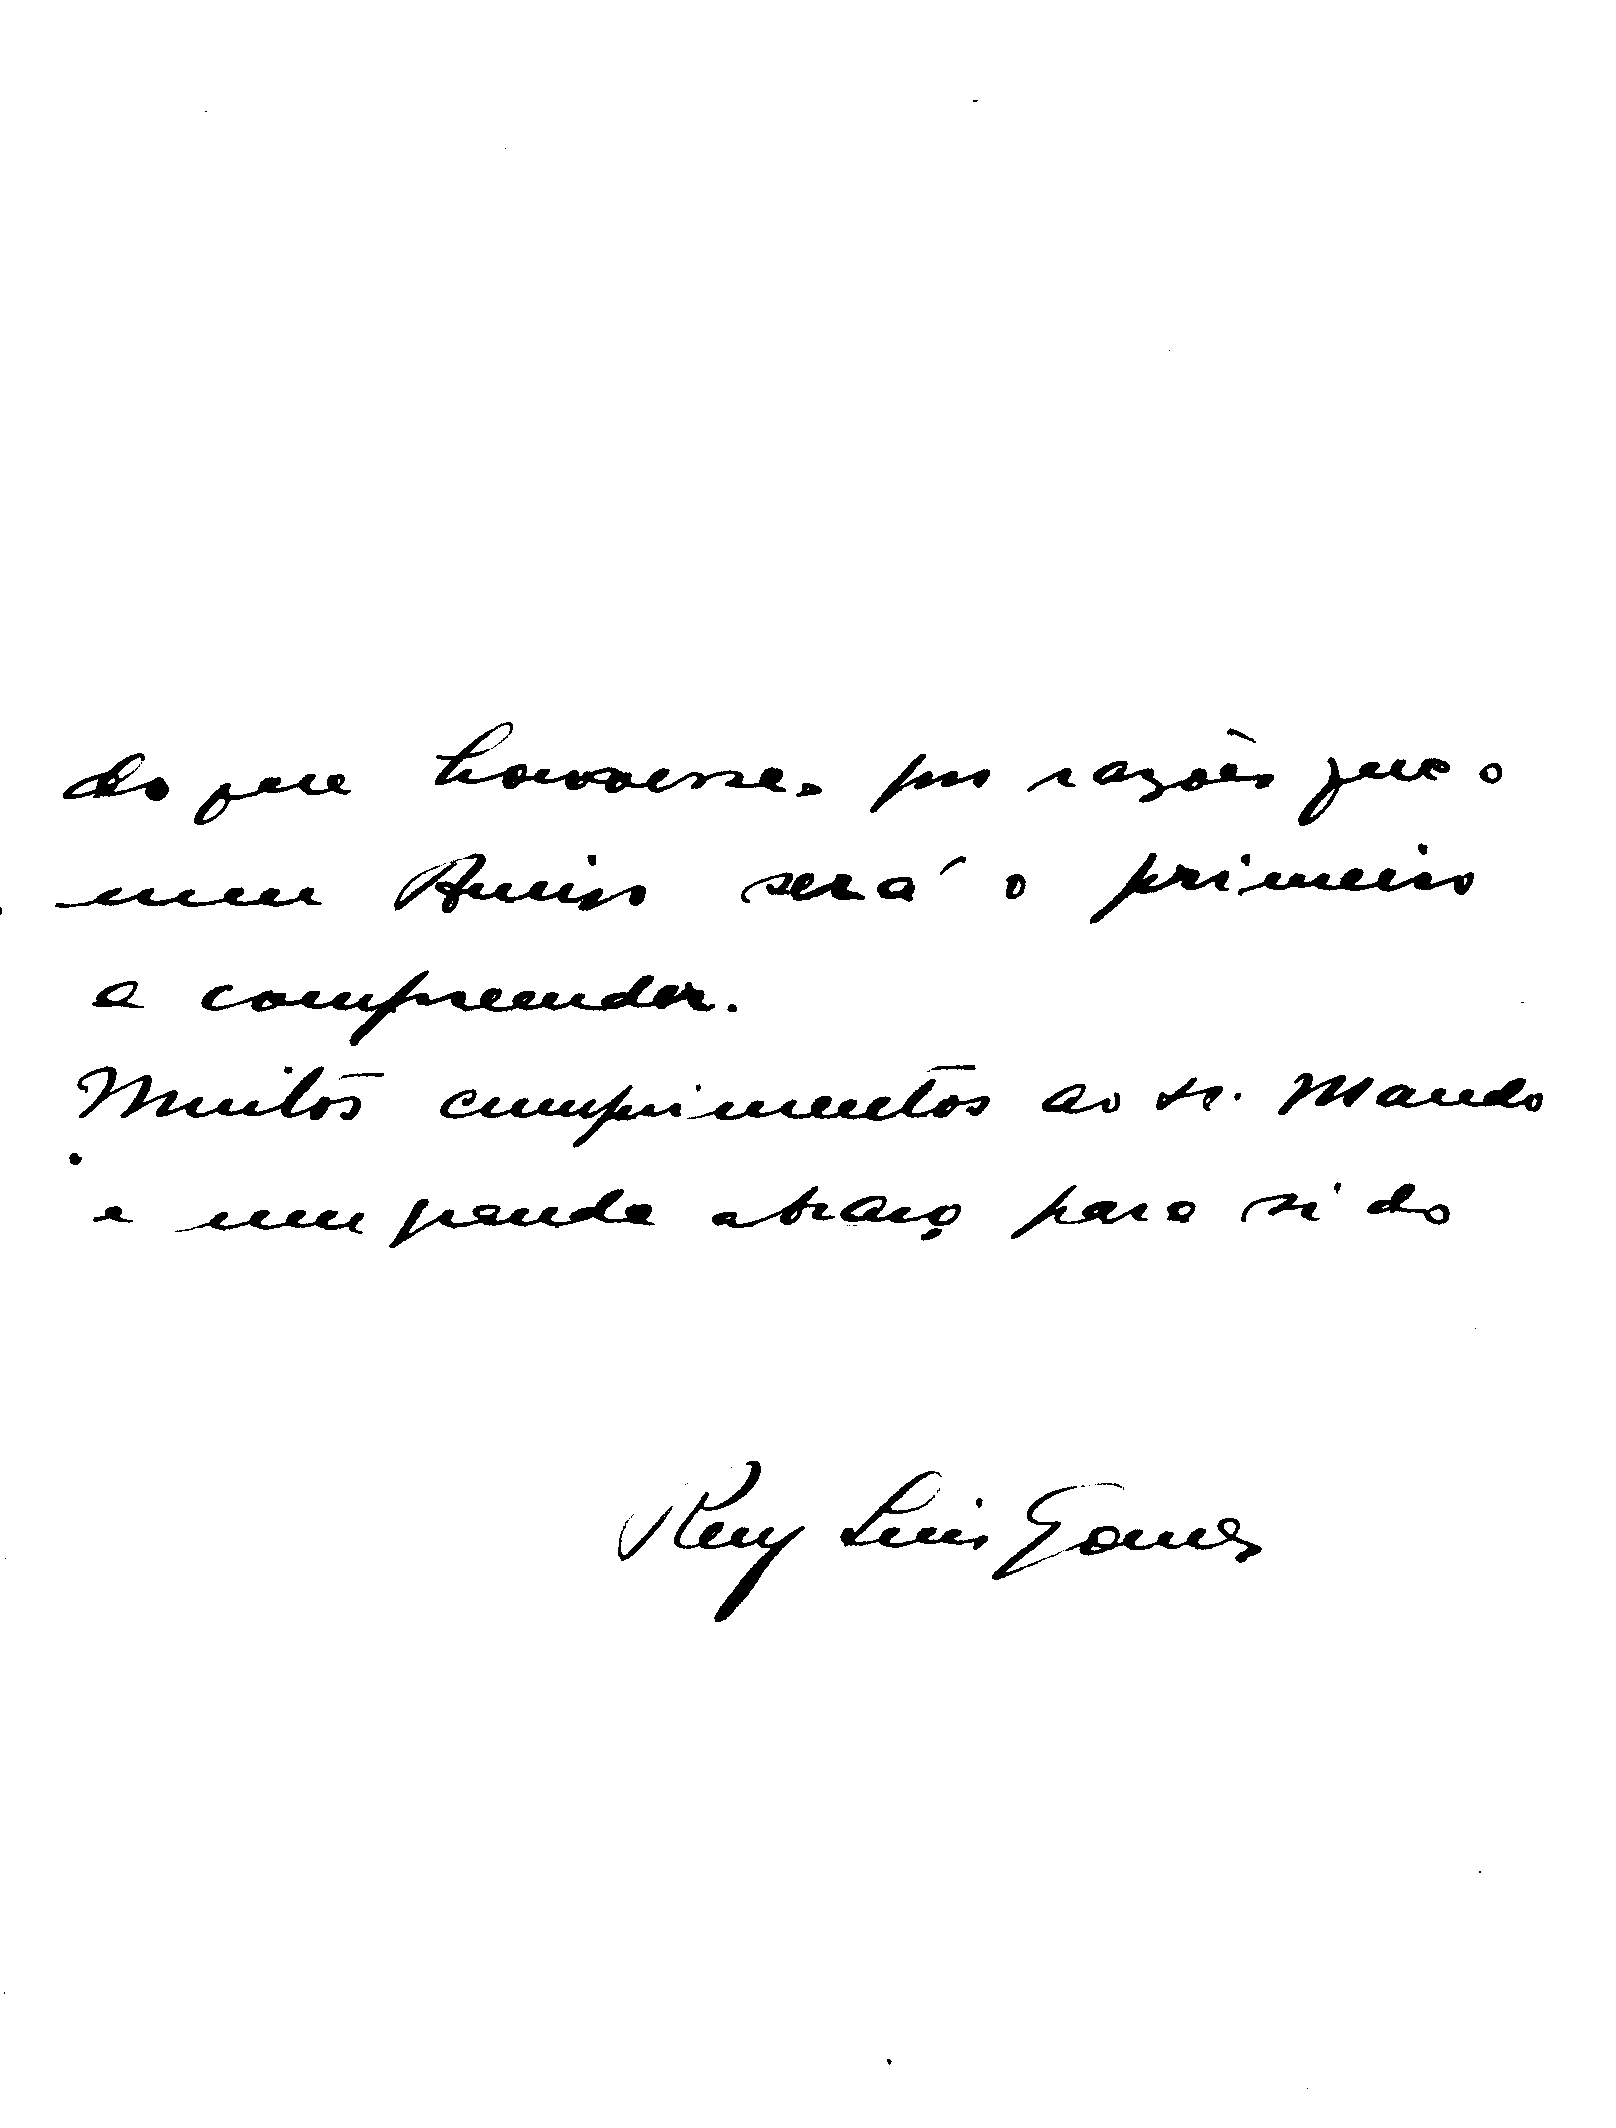 do que houvesse, por razões que o
meu Amigo será o primeiro
a compreender.
Muitos cumprimentos ao sr. Mando
e um grande abraço para si do
Ruy Luis Gomes